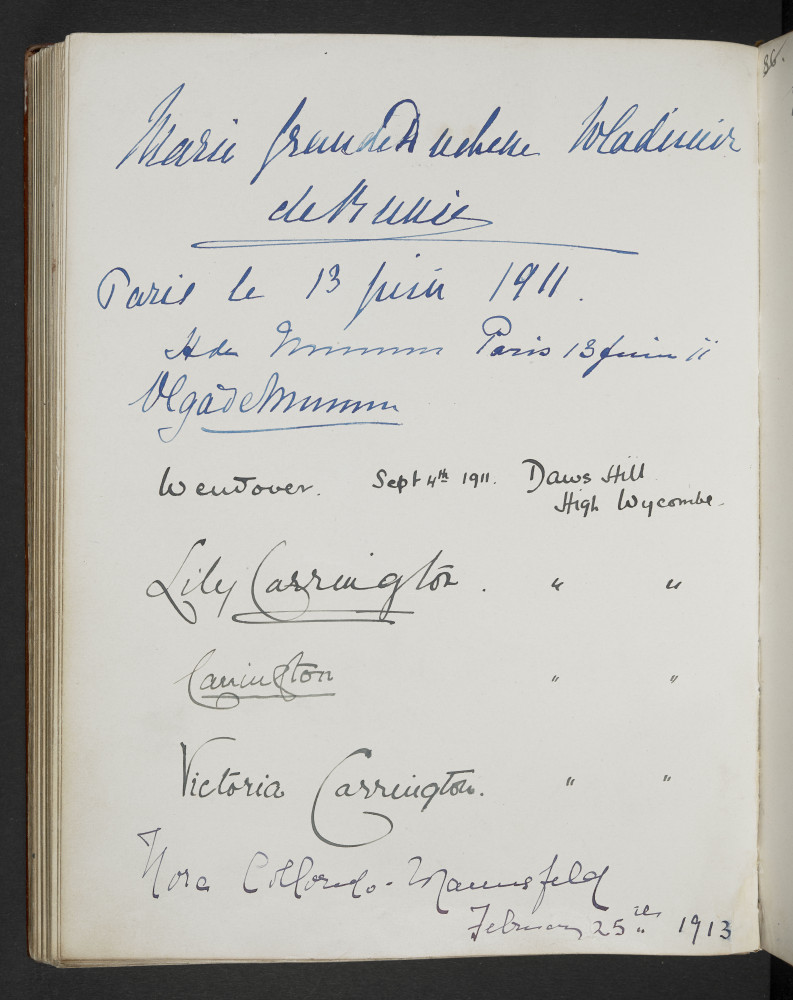 Marie Grande Duchesse Wladimir
de Russie
Paris le 13 juin 1911.
H de Mumm Paris 13 juin 11
Olga de Mumm
Wendover. Sept 4th 1911. Daws Hill
High Wycombe.
Lily Carrington. " "
Carrington " "
Victoria Carrington. " "
Nora Colloredo-Mannsfeld
February 25th 1913
86.